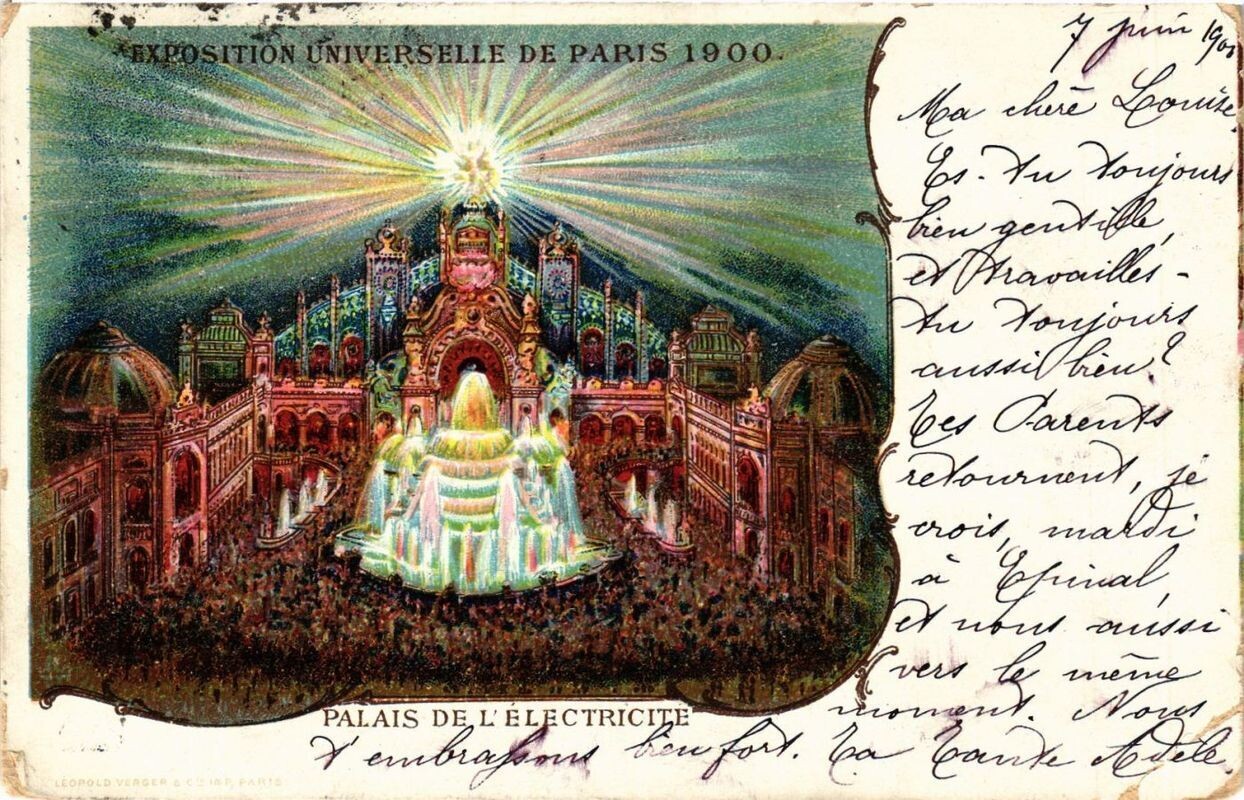 EXPOSITION UNIVERSELLE DE PARIS 1900.
7 juin 1900
Ma chère Louise,
Es-tu toujours
bien gentille,
et travailles-
tu toujours
aussi bien?
Tes Parents
retournent, je
crois, mardi
à Epinal,
et nous aussi
vers le même
moment. Nous
t'embrassons bien fort. Ta Tante Adèle.
PALAIS DE L'ÉLECTRICITÉ
LÉOPOLD VERGER & Cie IMP. PARIS